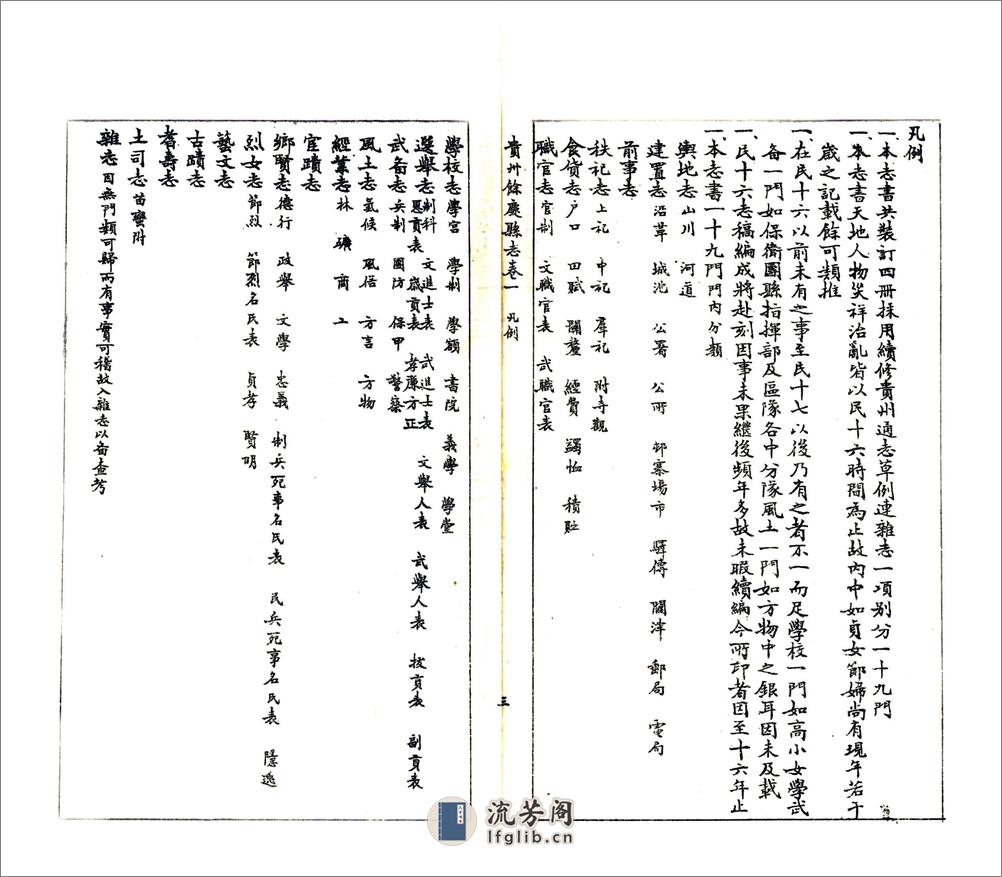 凡例
一本志書共裝訂四冊採用續修貴州通志草例連雜志一項別分一十九門
一本志書天地人物災祥治亂皆以民十六時間為止故內中如貞女節婦尚有現年若干
歲之記載餘可類推
一在民十六以前未有之事至民十七以後乃有之者不一而足學校一門如高小女學武
备一門如保衛團縣指揮部及區隊各中分隊風土一門如方物中之銀耳因未及載
一民十六志稿編成將赴刻因事未果繼後頻年多故未暇續編今所印者因至十六年止
一本志書一十九門門內分類
輿地志 山川 河道
建置志 沿革 城池 公署 公所 邨寨場市 驛傳 關津 郵局 電局
前事志
秩祀志 上祀 中祀 羣祀 附寺觀
食貨志 户口 田賦 關釐 經費 蠲恤 積貯
職官志 官制 文職官表 武職官表
貴州餘慶縣志卷一 凡例
三
學校志 學宮 學制 學額 書院 義學 學堂
選舉志 制科 文進士表 武進士表 文舉人表 武舉人表 拔貢表 副貢表
恩貢表 歲貢表 孝廉方正
武备志 兵制 團防 保甲 警察
風土志 氣候 風俗 方言 方物
經業志 林 礦 商 工
宦蹟志
鄉賢志 德行 政舉 文學 忠義 制兵死事名氏表 民兵死事名氏表 隱逸
烈女志 節烈 節烈名氏表 貞孝 賢明
藝文志
古蹟志
耆壽志
土司志 苗蠻附
雜志 因無門類可歸而有事實可稽故入雜志以备查考
流芳阁
lfglib.cn